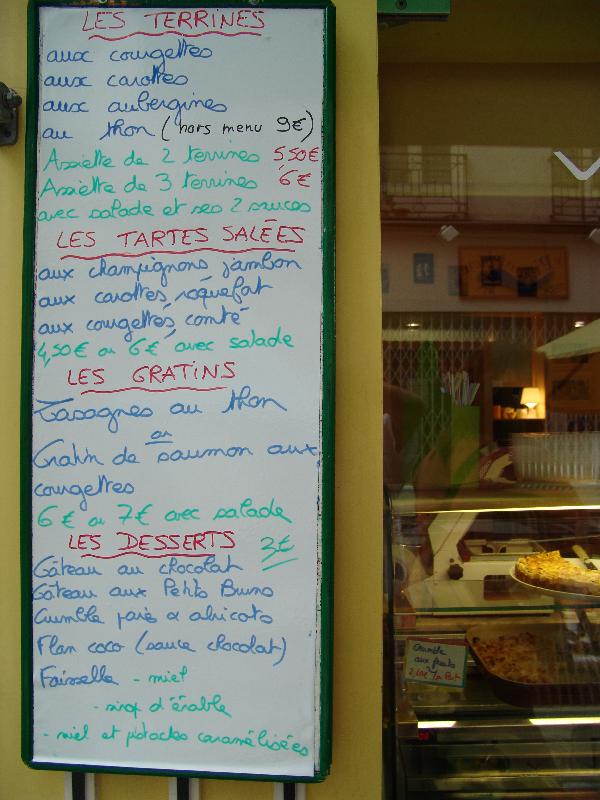 LES TERRINES
aux courgettes
aux carottes
aux aubergines
au thon (hors menu 9€)
Assiette de 2 terrines 5,50€
Assiette de 3 terrines 6€
avec salade et ses 2 sauces
LES TARTES SALÉES
aux champignons, jambon
aux carottes, roquefort
aux courgettes, comté
4,50€ ou 6€ avec salade
LES GRATINS
Lasagnes au thon
ou
Gratin de saumon aux
courgettes
6€ ou 7€ avec salade
LES DESSERTS 3€
Gâteau au chocolat
Gâteau aux Petits Bruns
Crumble poires & abricots
Flan coco (sauce chocolat)
Faisselle - miel
- sirop d'érable
- miel et pistaches caramélisées
Crumble
aux fruits
2,60€ la Part